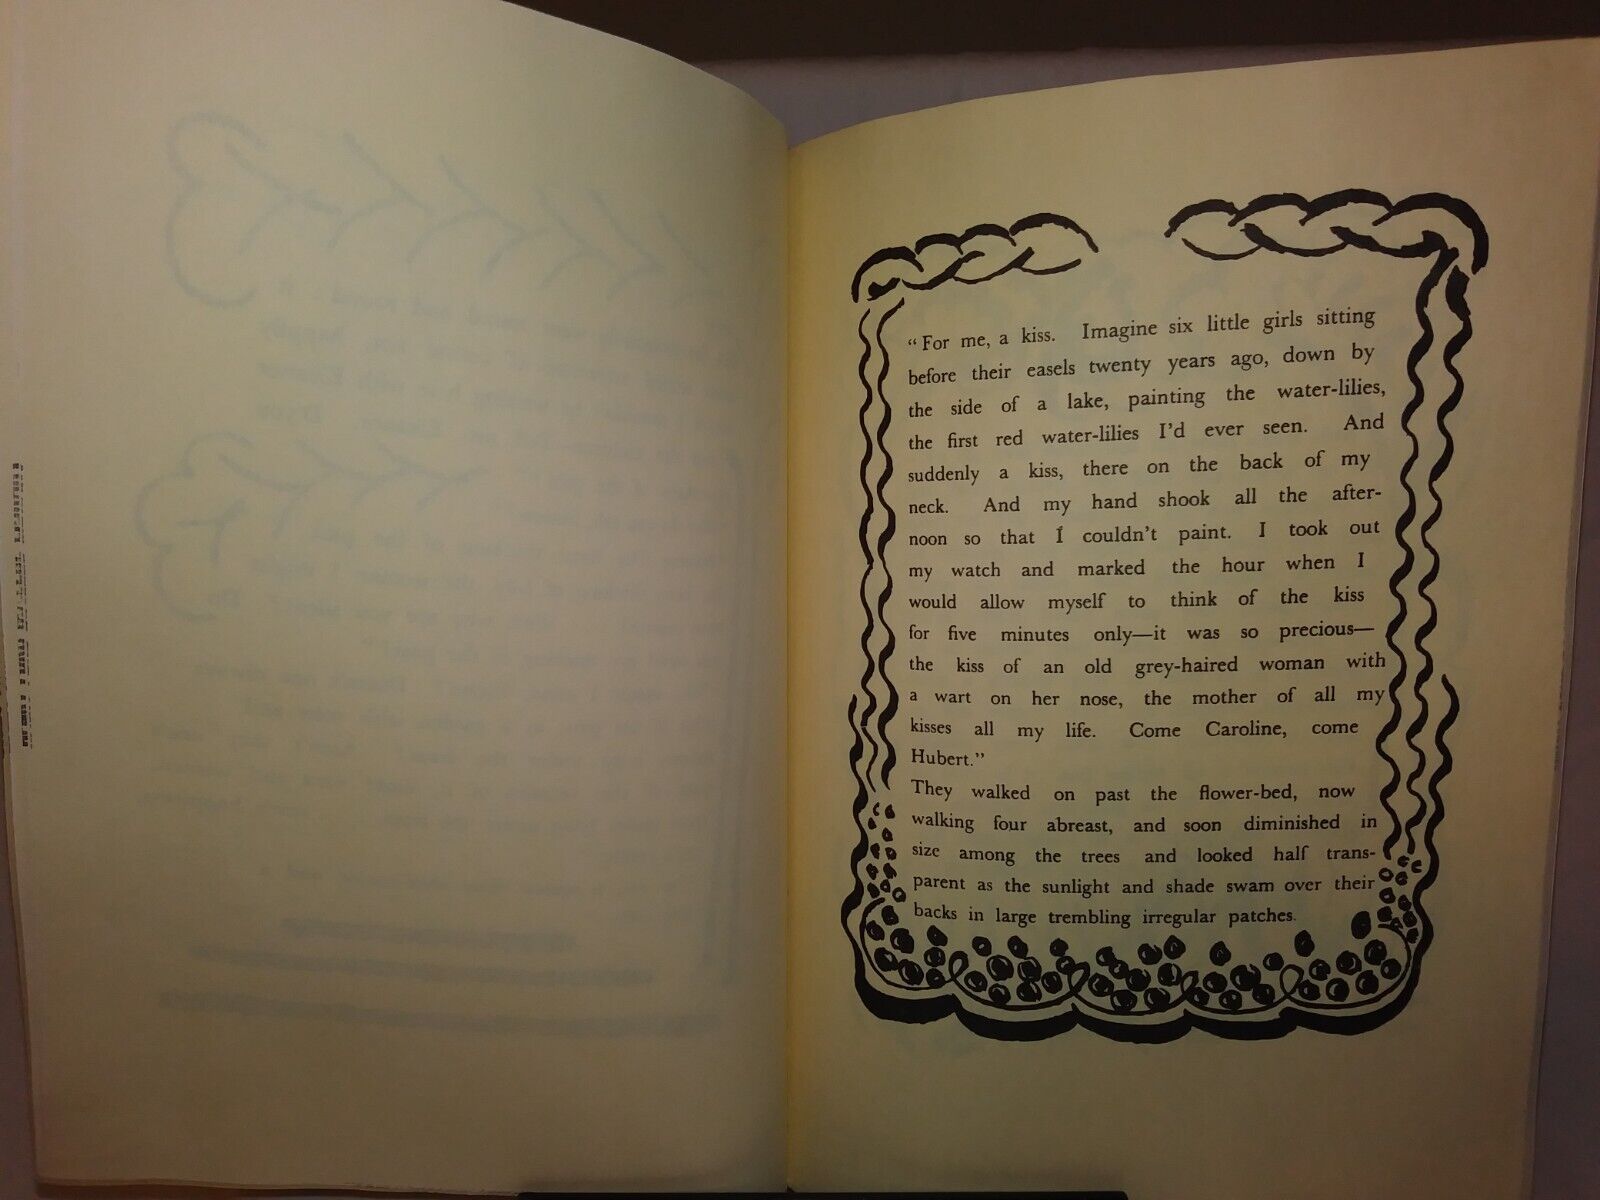 “For me, a kiss. Imagine six little girls sitting
before their easels twenty years ago, down by
the side of a lake, painting the water-lilies,
the first red water-lilies I’d ever seen. And
suddenly a kiss, there on the back of my
neck. And my hand shook all the after-
noon so that I couldn’t paint. I took out
my watch and marked the hour when I
would allow myself to think of the kiss
for five minutes only—it was so precious—
the kiss of an old grey-haired woman with
a wart on her nose, the mother of all my
kisses all my life. Come Caroline, come
Hubert.”
They walked on past the flower-bed, now
walking four abreast, and soon diminished in
size among the trees and looked half trans-
parent as the sunlight and shade swam over their
backs in large trembling irregular patches.